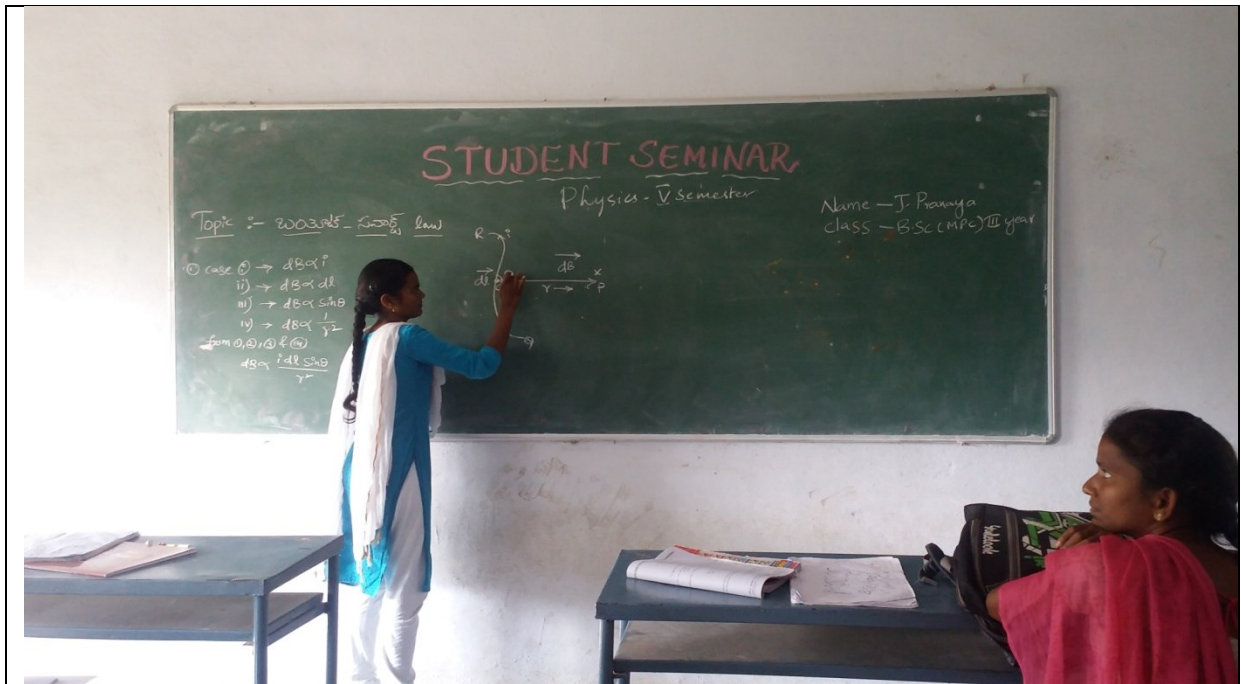 STUDENT SEMINAR
Physics - V semester
Name - J. Pranaya
class - B.Sc (MPC) III year
Topic :- బయోట్ - సవార్ట్ law
① case ① → dB ∝ i
ii) → dB ∝ dl
iii) → dB ∝ sinθ
iv) → dB ∝ 1/r²
from ①, ②, ③ & (iv)
dB ∝ i dl sinθ / r²
R i
dl dB x
r → P
Q